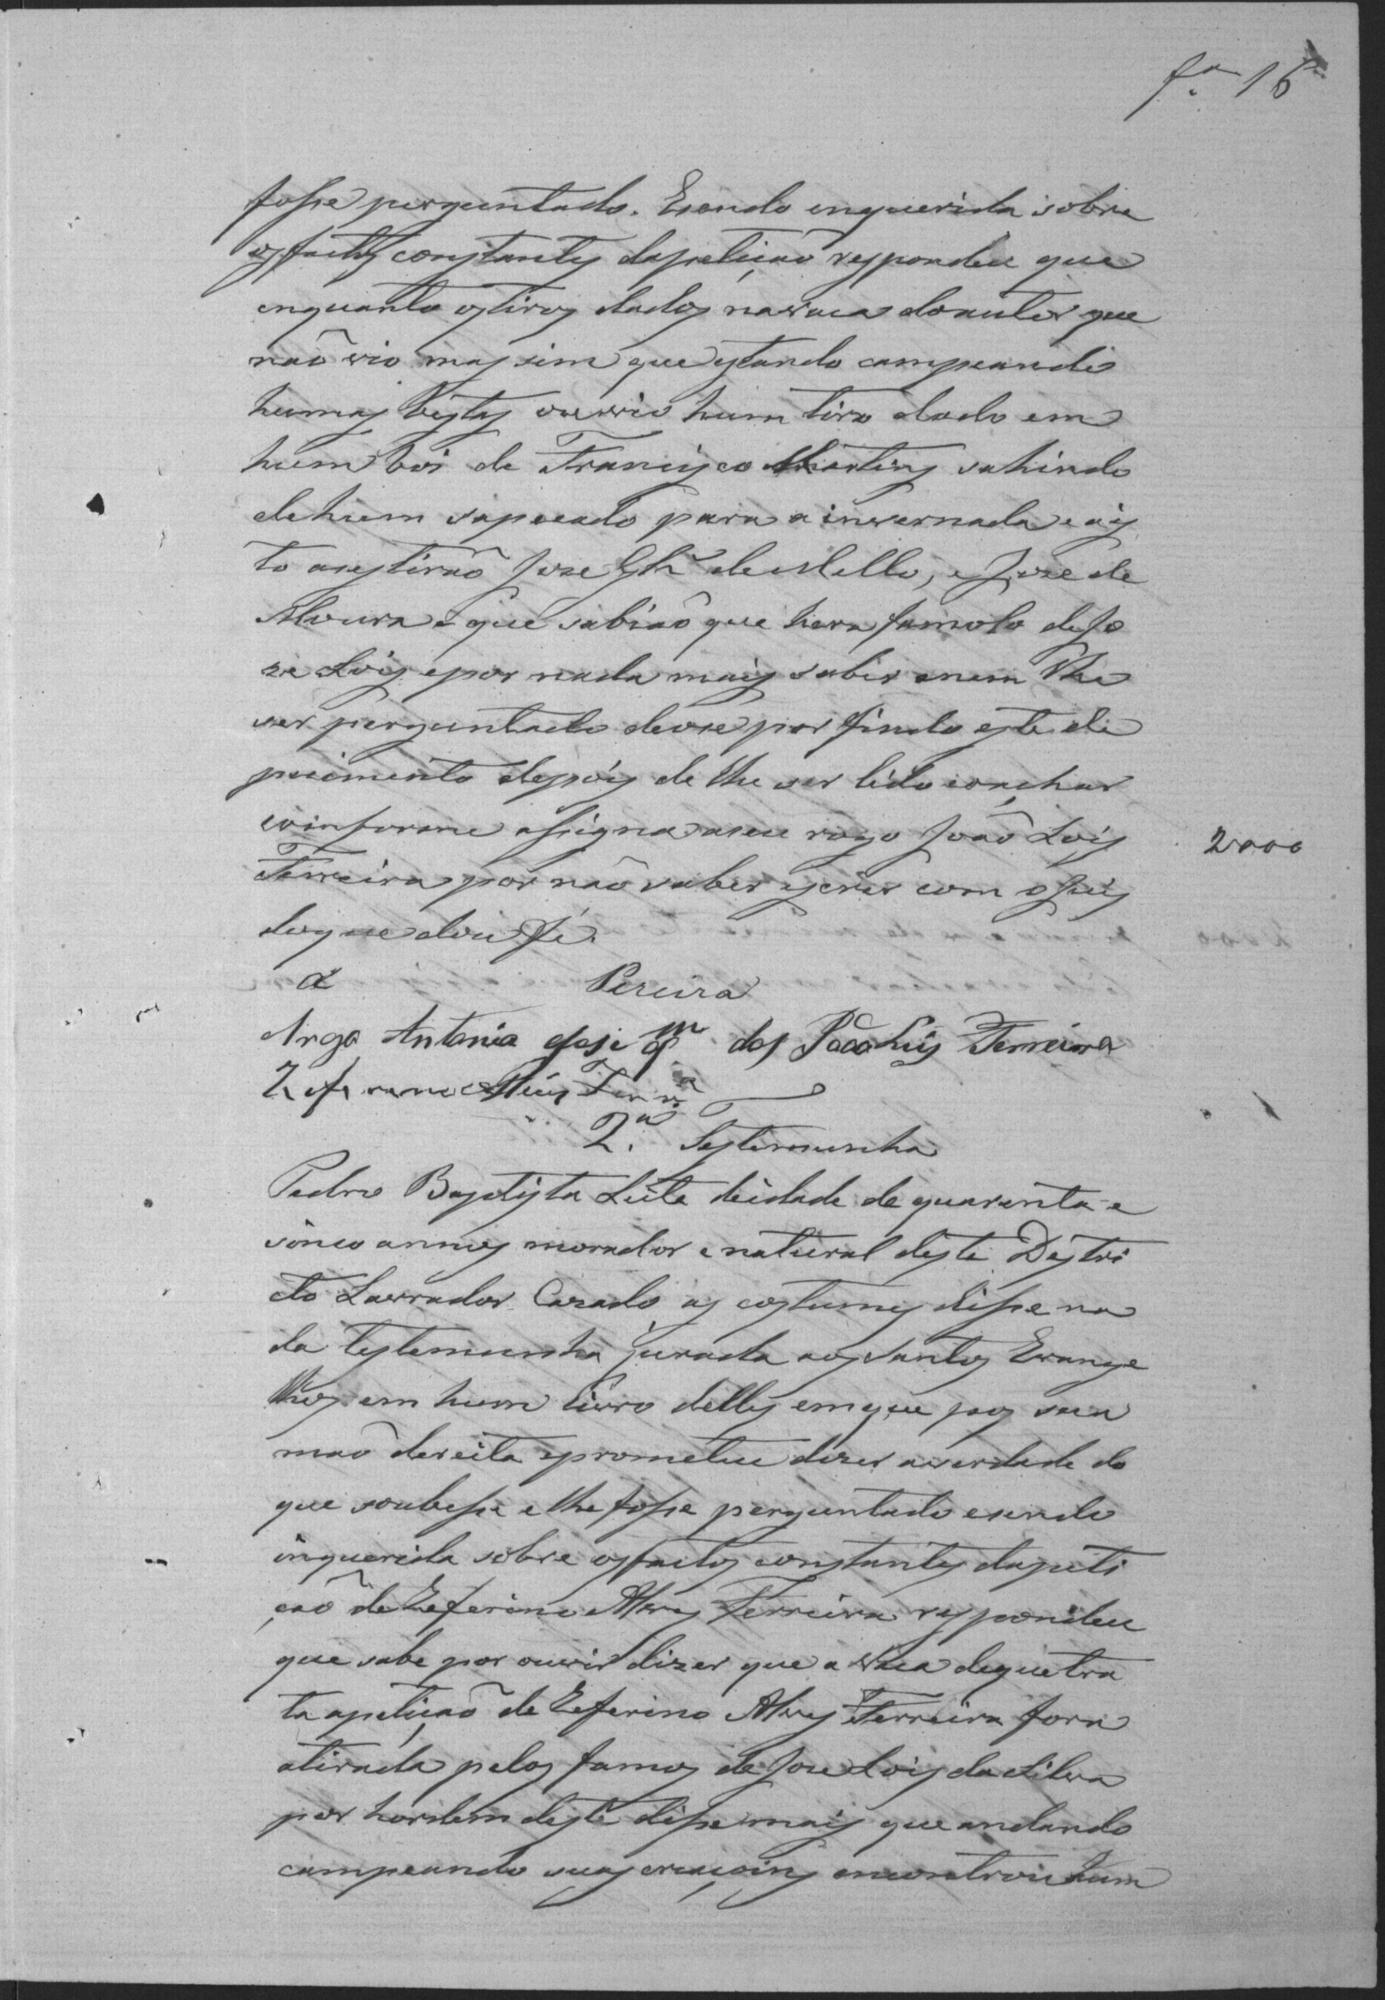 fs. 16
fosse perguntado. Esendo enquerida sobre
os factos constantes dapetiçaõ respondeu que
enquanto os tiros dados navaca doautor que
naõ vio mas sim que estando campeando
humas bestas ouvio hum tiro dado em
hum boi de Francisco Martins sahindo
dehum sapecado para a invernada e ais
to asestiraõ Joze Glz de Mello, e Joze de
Moura e que sabiaõ que hera famolo de Jo
ze Lois epor nada mais saber enem lhe
ser perguntado deose por findo este de
poimento depois de lhe ser lido eoachar
coinforme assigna aseu rogo Joaõ Lois
Ferreira por naõ saber escrever com o Juis
doque dou fé.
2000
Pereira
Arogo Antonio Jose dos João Luis Ferreira
Zeferino Ferrª
2.ª Testemunha
Pedro Baptista Leite deidade de quarenta e
sinco annos morador e natural deste Destri
cto Lavrador Cazado as costumes disse na
da testemunha jurada aos Santos Evange
lhos em hum livro delles emque pos sua
maõ dereita eprometeu dizer averdade do
que soubesse e lhe fosse perguntado esendo
inquerida sobre osfactos constantes dapeti
çaõ de Zeferino Alves Ferreira respondeu
que sabe por ouvir dizer que a vaca dequetra
ta apetiçaõ de Zeferino Alves Ferreira fora
atirada pelos famos de Joze Lois da Silva
por hordem deste disse mais que andando
campeando suas criaçoins encontrou hum